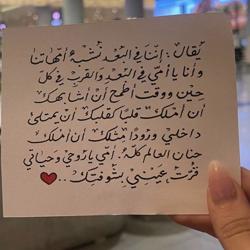 يُقال : إننا في البُعد نُشبهُ أمّهاتنا
وأنا يا أمي في البُعد والقُرب في كلّ
حين ووقت أطمح أن أشابهك
أن أمتلك قلبًا كقلبك أن يمتلئ
داخلي ورودًا مثلك أن أمتلك
حنان العالم كلّه . أمي ياروحي وحياتي
قرّت عيني بشوفتك . .